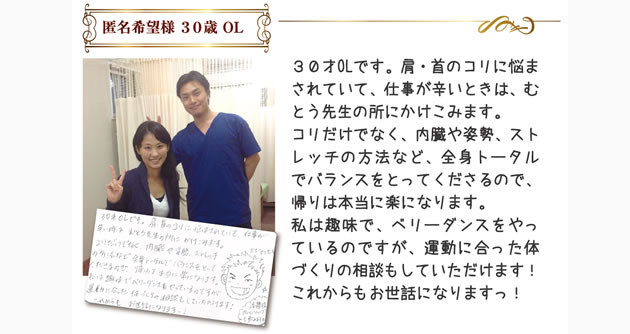 匿名希望様 30歳 OL
３０才OLです。肩・首のコリに悩ま
されていて、仕事が辛いときは、む
とう先生の所にかけこみます。
コリだけでなく、内臓や姿勢、スト
レッチの方法など、全身トータル
でバランスをとってくださるので、
帰りは本当に楽になります。
私は趣味で、ベリーダンスをやっ
ているのですが、運動に合った体
づくりの相談もしていただけます！
これからもお世話になりますっ！
30才OLです。肩・首のコリに悩まされていて、仕事が
コリだけでなく、内臓や姿勢、ストレッチ
の方法など、全身トータルでバランスをとって
くださるので、帰りは本当に楽になります。
私は趣味でベリーダンスをやっているのですが
これからも お世話になりますっ！